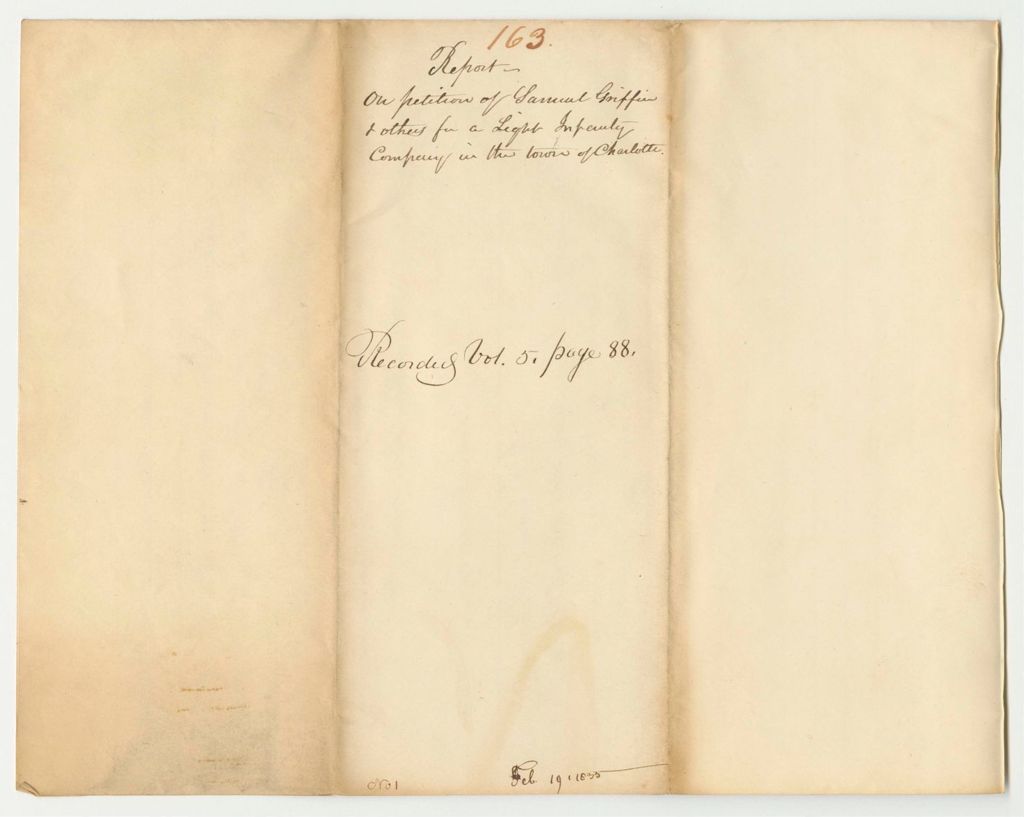 163.
Report
On petition of Samuel Griffin
& others for a Light Infantry
Company in the town of Charlotte.
Recorded Vol. 5. page 88.
No 1
Feb 19, 1835